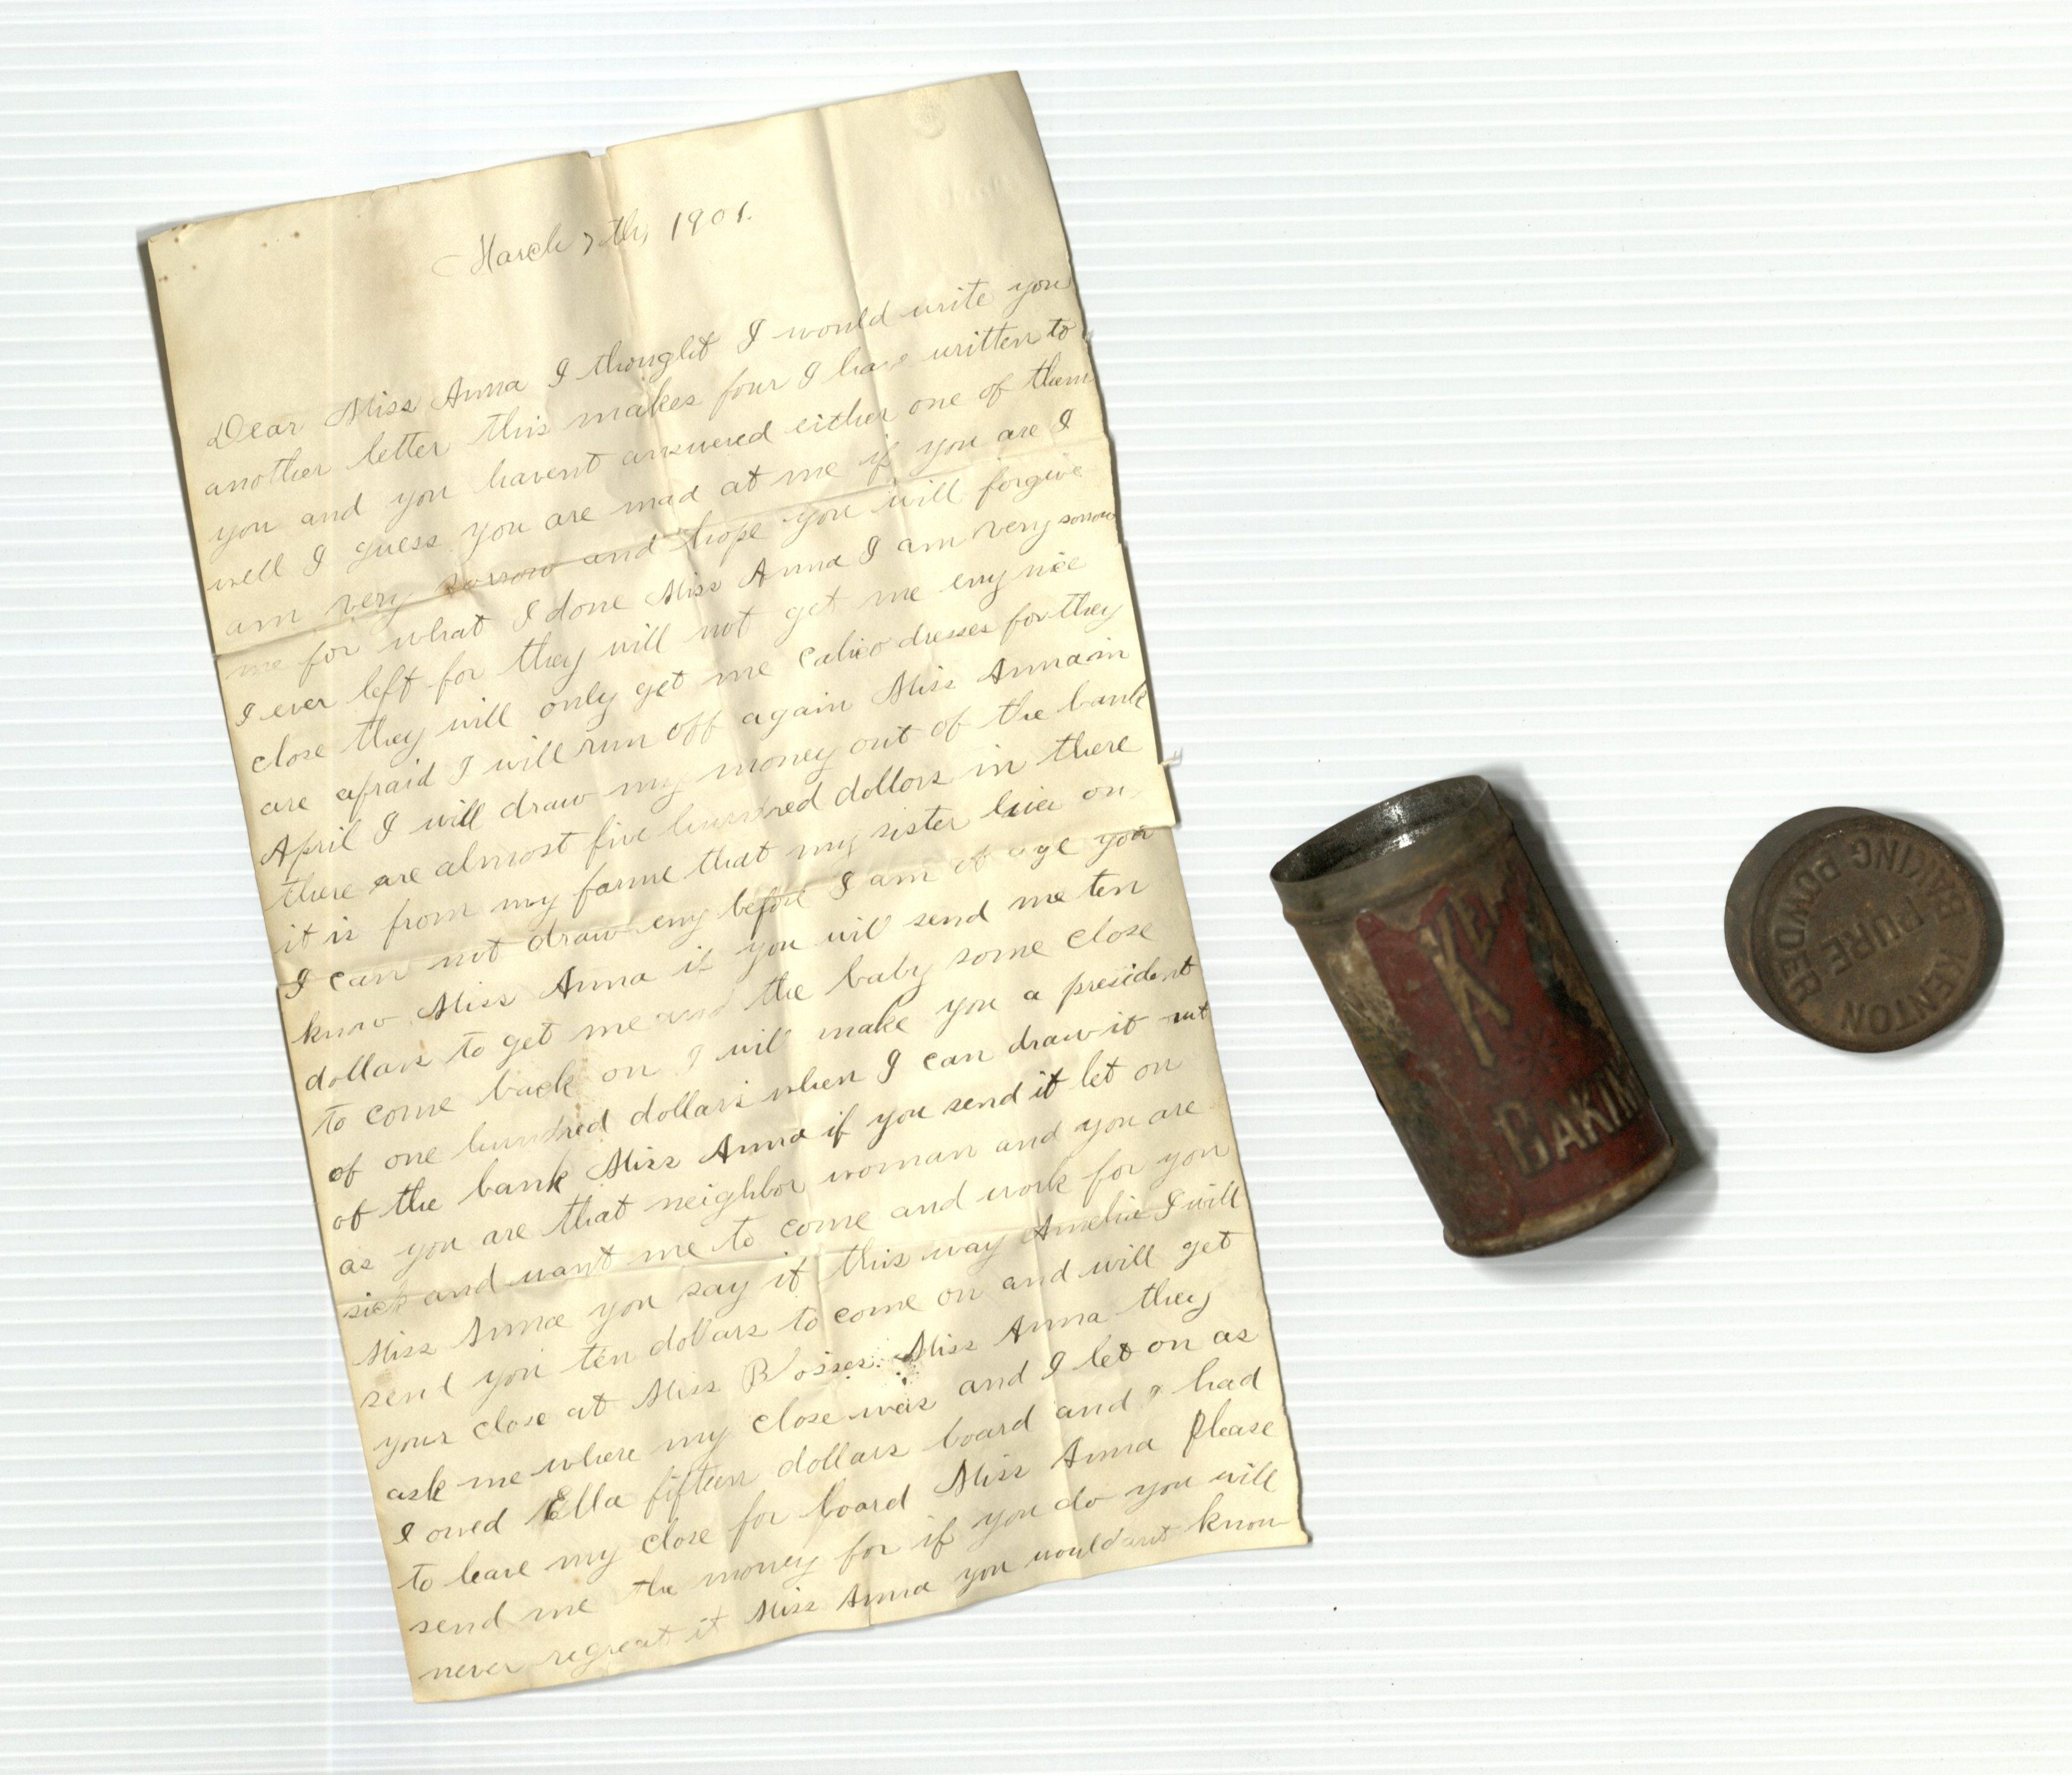 March 7th, 1901.
Dear Miss Anna I thought I would write you
another letter this makes four I have written to
you and you havent answered either one of them
well I guess you are mad at me if you are I
am very sorrow and hope you will forgive
me for what I done Miss Anna I am very sorrow
I ever left for they will not get me eny nice
close they will only get me calico dresses for they
are afraid I will run off again Miss Anna in
April I will draw my money out of the bank
there are almost five hundred dollars in there
it is from my farme that my sister live on
I can not draw eny before I am of age you
know Miss Anna if you will send me ten
dollars to get me and the baby some close
to come back on I will make you a president
of one hundred dollars when I can draw it out
of the bank Miss Anna if you send it let on
as you are that neighbor woman and you are
sick and want me to come and work for you
Miss Anna you say it this way Amelia I will
send you ten dollars to come on and will get
your close at Miss Miss Anna they
ask me where my close was and I let on as
I owed Ella fifteen dollars board and I had
to leave my close for board Miss Anna Please
send me the money for if you do you will
never regreat it Miss Anna you know
BAKIN
KENTON
BAKING POWDER
PURE